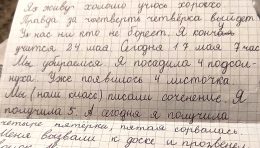 Я живу хорошо учюсь хорошо
Правда за четверть четвёрка выйдет
У нас ни кто не болеет. Я кончаю
учится 24 мая. Сегодня 17 мая 7 час
Мы убираемся. Я посадила 4 подсол-
нуха. Уже появилось 4 листочка.
Мы (наш класс) писали сочинение. Я
получила 5. А сегодня я получила
четыре пятёрки, пятая сорвалась.
Меня вызвали к доске и прозвенел